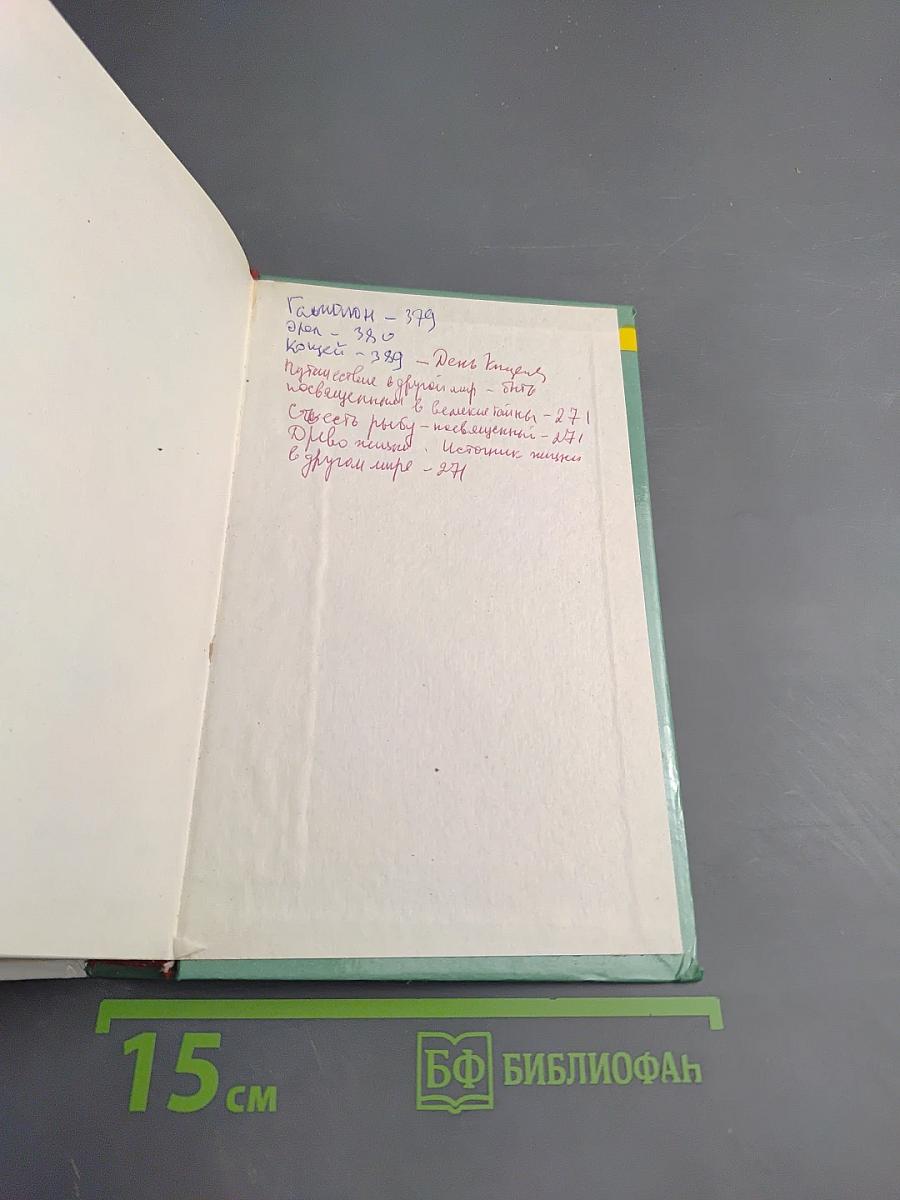 – 379
Орел – 380
Кощей – 389 – День
Путшествие в другой мир – быть
посвященным в великие тайны – 271
Съесть рыбу – посвященный – 271
Древо жизни. Источник жизни
в другом мире – 271
15 см
БФ БИБЛИОФАН